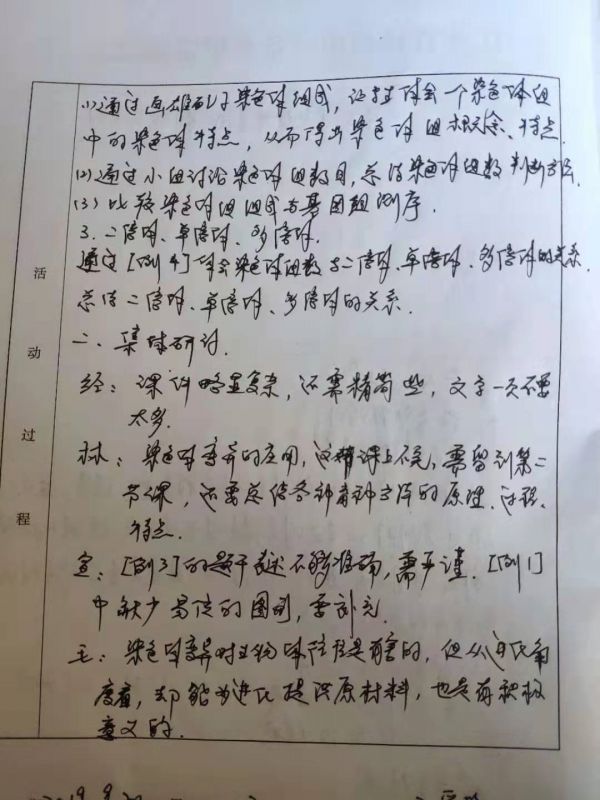 (1)通过画雄配子染色体组成，让学生体会一个染色体组
中的染色体特点，从而得出染色体组概念、特点.
(2)通过小组讨论染色体组数目，总结染色体组数判断方法.
(3)比较染色体组组成与基因组测序.
3.二倍体、单倍体、多倍体.
通过[例4]体会染色体组数与二倍体、单倍体、多倍体的关系.
总结二倍体、单倍体、多倍体的关系.
二、集体研讨.
经：课件略显复杂，还需精简些，文字一页不要
太多.
林：染色体变异的应用，这节课上不完，需留到第二
节课，还要总结各种育种方法的原理、过程、
特点.
宣：[例3]的题干表述不够准确，需严谨.[例1]
中缺少易位的图例，要补充.
毛：染色体变异对生物体往往是有害的，但从进化角
度看，却能为进化提供原材料，也是有积极
意义的.
活
动
过
程
2019.9